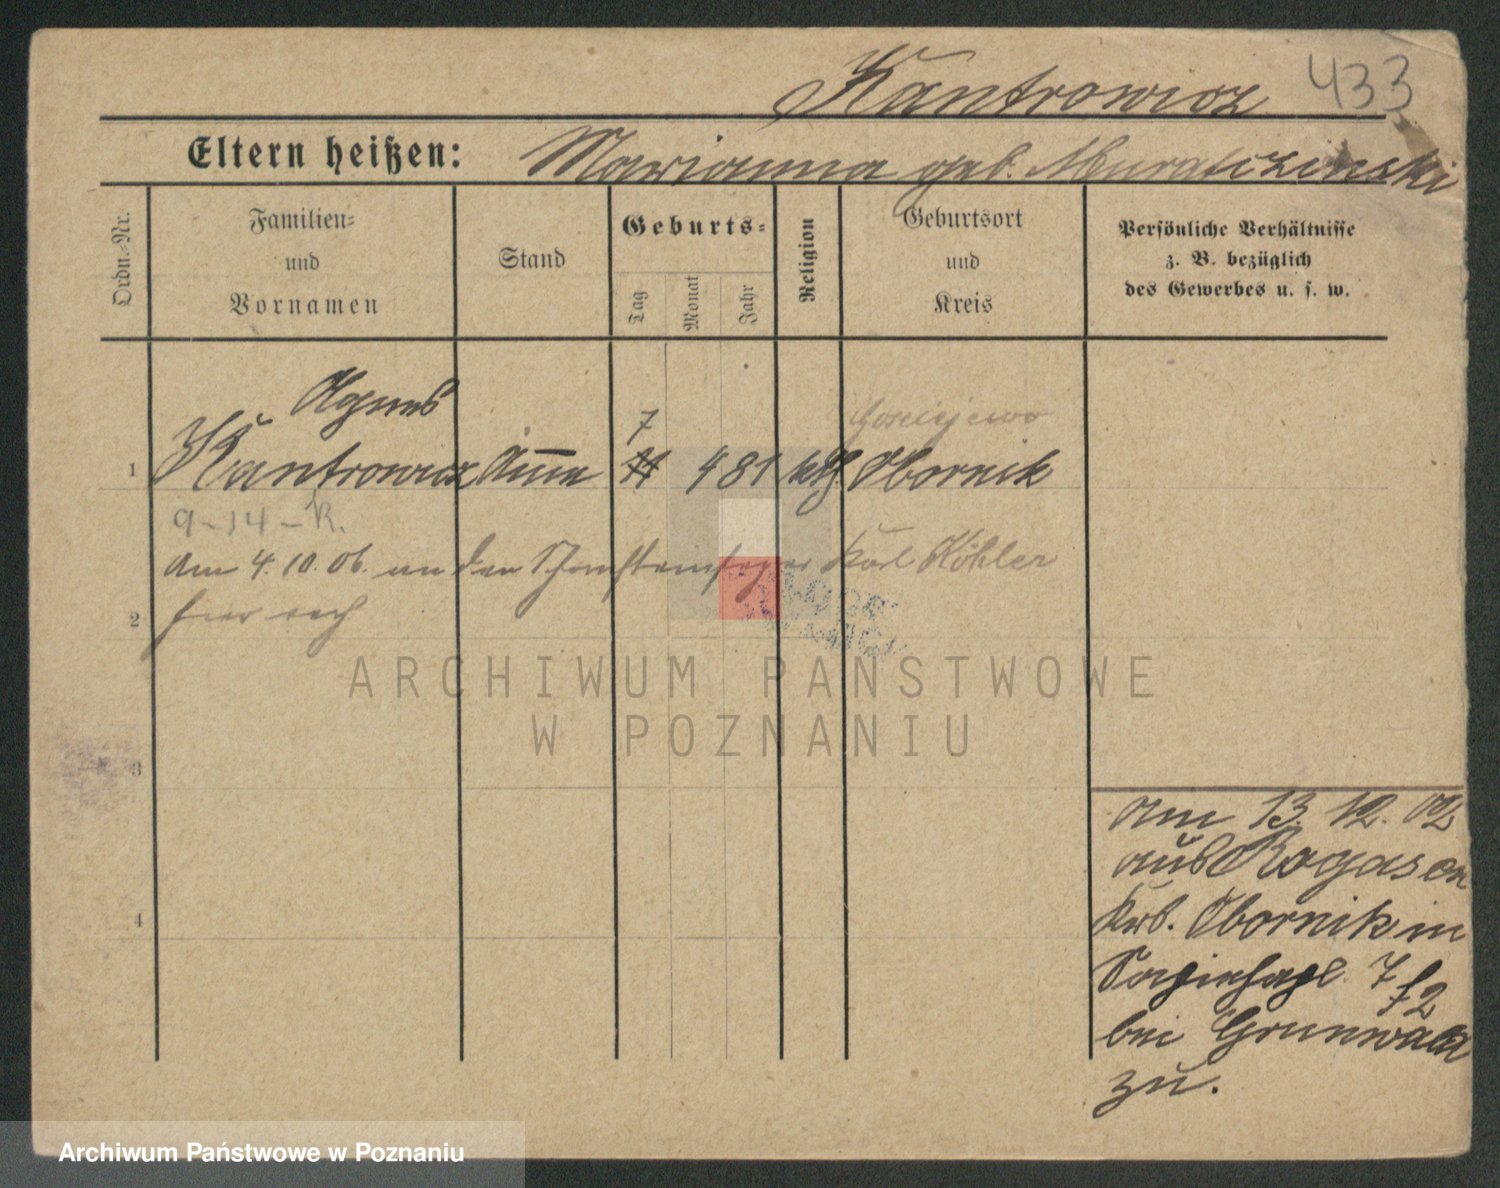 Kantrowicz 433
Eltern heißen: Marianna geb.
Ordn.-Nr.
Familien-
und
Vornamen
Stand
Geburts-
Tag
Monat
Jahr
Religion
Geburtsort
und
Kreis
Persönliche Verhältnisse
z. B. bezüglich
des Gewerbes u. s. w.
Agnes
7
1 Kantrowicz 11 4 81 kth Obornik
9-14-R.
Am 4.10.06. an den Schornsteinfeger Karl Köhler
2 hier
3
4
Am 13. 12. 02
aus Rogasen
Krs. Obornik in
7
bei Grunwald
zu.
ARCHIWUM PAŃSTWOWE
W POZNANIU
Archiwum Państwowe w Poznaniu